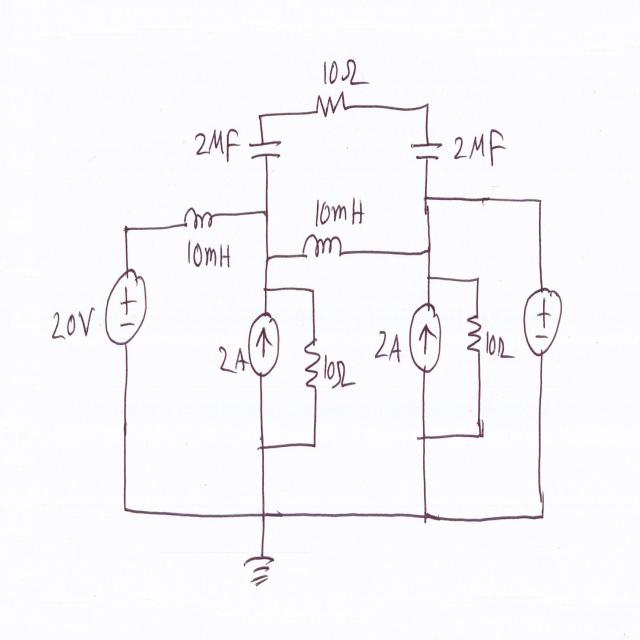 10Ω
2MF
2MF
10mH
10mH
20V
2A
10Ω
2A
10Ω